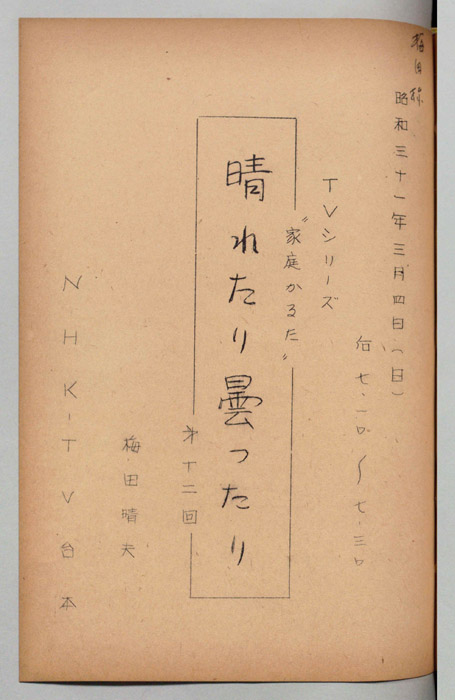 昭和三十一年三月四日(日)
七・一〇〜七・三〇
TVシリーズ
"家庭かるた"
晴れたり曇ったり
第十二回
梅田晴夫
NHK-TV台本